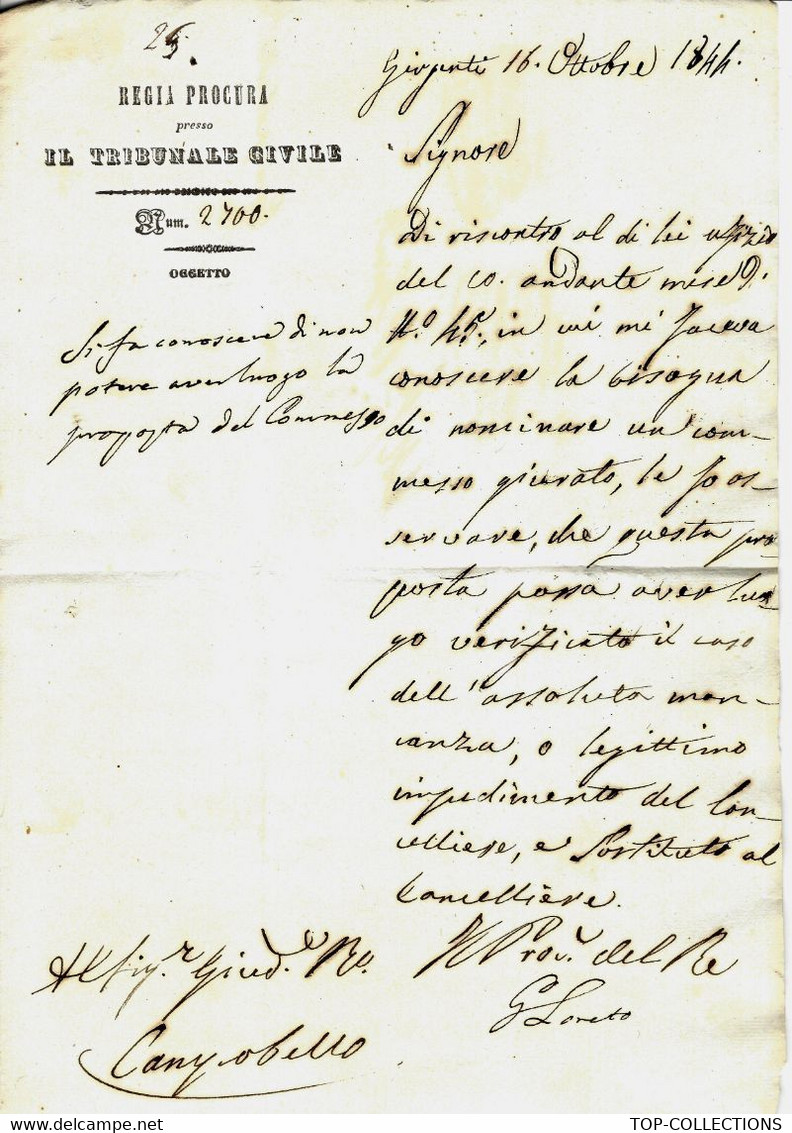 25.
REGIA PROCURA
presso
IL TRIBUNALE CIVILE
Num. 2700.
OGGETTO
Si fa conoscere di non
potere aver luogo la
proposta del Commesso
Girgenti 16. Ottobre 1844.
Signore
Di riscontro al di lei uffizio
del 10. andante mese di
N.º 45., in cui mi faceva
conoscere la bisogna
di nominare un com-
messo giurato, le fo os-
servare, che questa pro
posta possa aver luo-
go verificato il caso
dell'assoluta man-
canza, o legittimo
impedimento del Can-
celliere, e Sostituto al
Cancelliere.
Il Proc.r del Re
G Loreto
Al Sig.r Giud.e Ro.
Campobello
TOP-COLLECTIONS